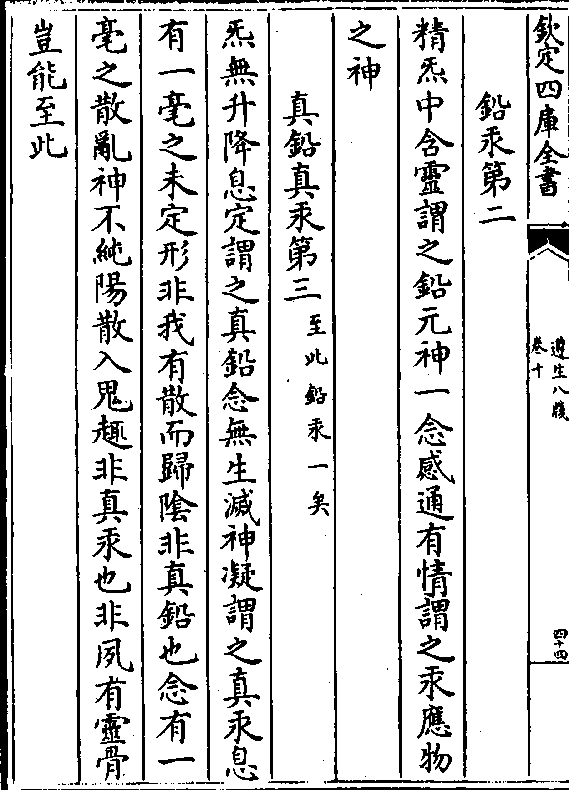 欽定四庫全書
遵生八牋
卷十
四十四
鉛汞第二
精炁中含靈謂之鉛元神一念感通有情謂之汞應物
之神
真鉛真汞第三至此鉛汞一矣
炁無升降息定謂之真鉛念無生滅神凝謂之真汞息
有一毫之未定形非我有散而歸陰非真鉛也念有一
毫之散亂神不純陽散入鬼趣非真汞也非夙有靈骨
豈能至此